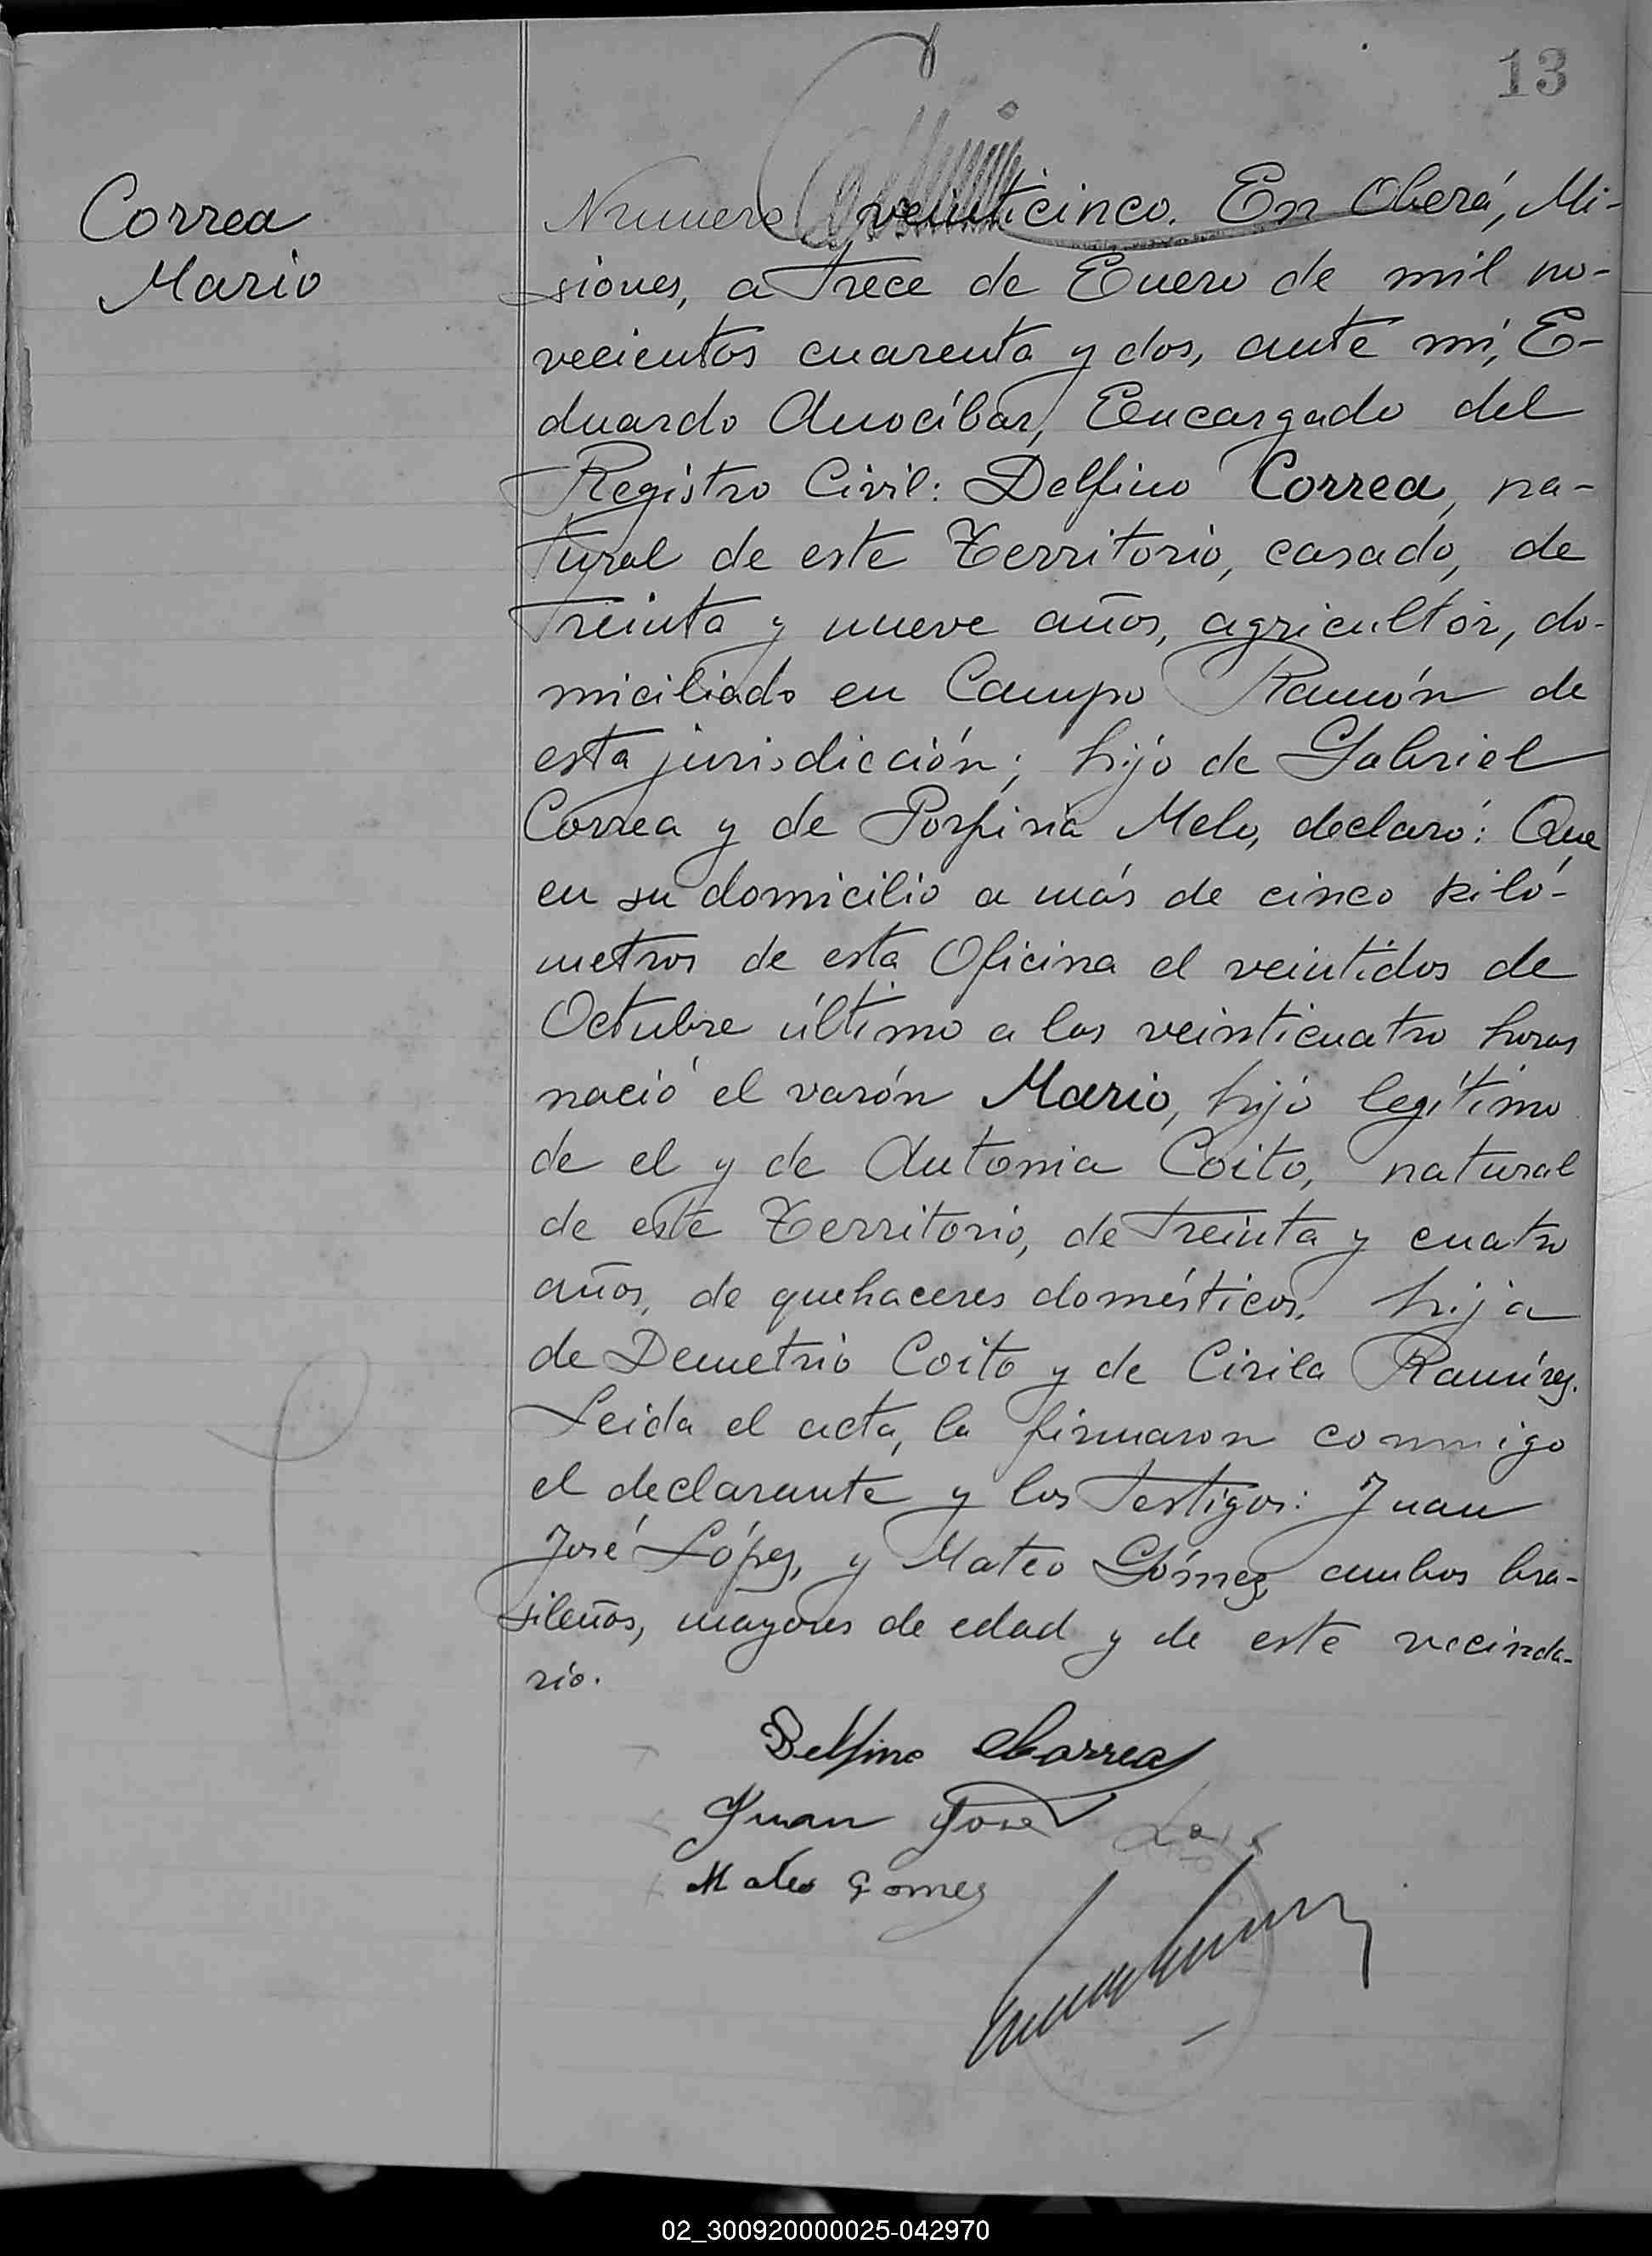 13
Correa
Mario
Numero veinticinco. En Oberá, Mi-
siones, a trece de Enero de mil no-
vecientos cuarenta y dos, ante mi, E-
duardo Anocíbar, Encargado del
Registro Civil: Delfino Correa, na-
tural de este Territorio, casado, de
treinta y nueve años, agricultor, do-
miciliado en Campo Ramón de
esta jurisdicción; hijo de Gabriel
Correa y de Porfiria Melo, declaró: Que
en su domicilio a más de cinco kiló-
metros de esta Oficina el veintidos de
Octubre último a las veinticuatro horas
nació el varón Mario, hijo legítimo
de el y de Antonia Coito, natural
de este Territorio, de treinta y cuatro
años, de quehaceres domésticos, hija
de Demetrio Coito y de Cirila Ramírez.
Leida el acta, la firmaron conmigo
el declarante y los testigos: Juan
José López, y Mateo Gómez, ambos bra-
sileños, mayores de edad y de este vecinda-
rio.
Delfino Correa
Juan Jose
Mateo Gomez
02_300920000025-042970